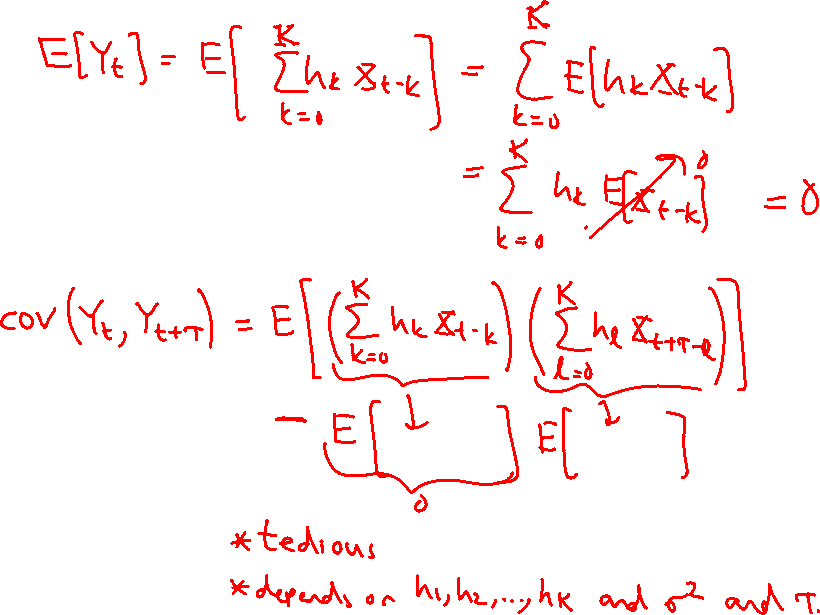 E[Y_t] = E[ ∑_{k=0}^{K} h_k X_{t-k} ] = ∑_{k=0}^{K} E[h_k X_{t-k}]
= ∑_{k=0}^{K} h_k E[X_{t-k}] 0 = 0
cov(Y_t, Y_{t+τ}) = E[ ( ∑_{k=0}^{K} h_k X_{t-k} ) ( ∑_{l=0}^{K} h_l X_{t+τ-l} ) ]
− E[ ↓ ] E[ ↓ ]
0
* tedious
* depends on h_1, h_2, ..., h_K and σ² and τ.